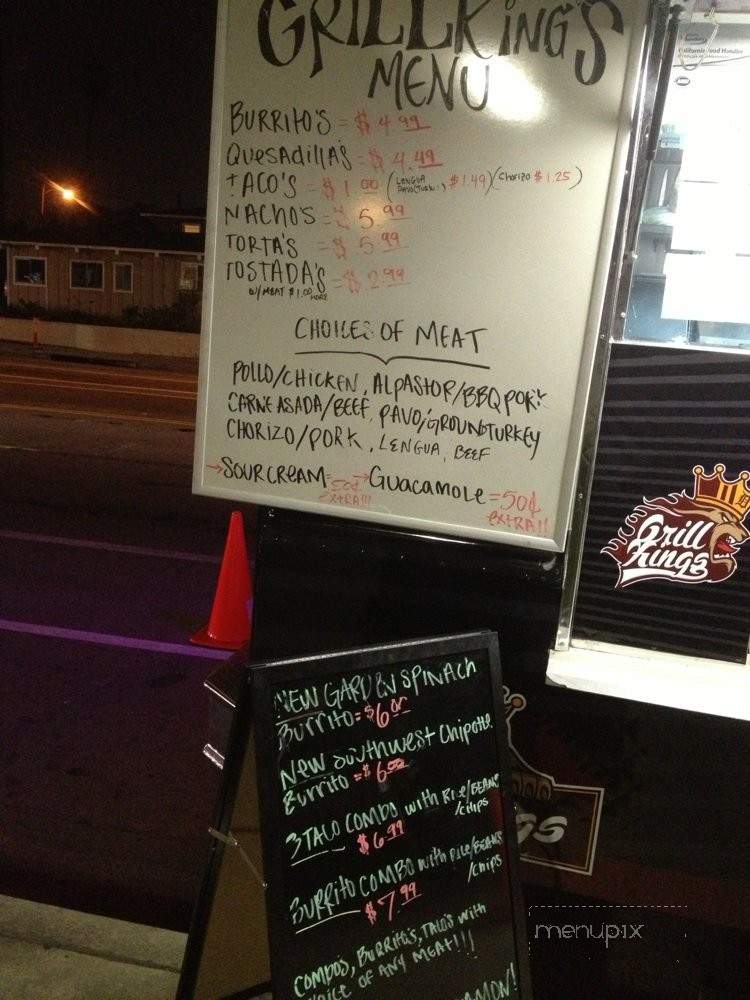 GRILLKING'S
MENU
BURRITO'S = $4.99
QUESADILLA'S = $4.49
TACO'S = $1.00 (LENGUA $1.49) (Chorizo $1.25)
NACHO'S = $5.99
TORTA'S = $5.99
TOSTADA'S = $2.99
W/MEAT $1.00 MORE
CHOICES OF MEAT
POLLO/CHICKEN, ALPASTOR/BBQ PORK
CARNE ASADA/BEEF, PAVO/GROUNDTURKEY
CHORIZO/PORK, LENGUA, BEEF
→SOURCREAM = 50¢ EXTRA!!! →Guacamole = 50¢ EXTRA!!
Grill
Kings
NEW GARDEN SPINACH
Burrito = $6.00
New Southwest Chipotle
Burrito = $6.00
3 TACO COMBO with Rice/BEANS
/chips
$6.99
BURRITO COMBO with RICE/BEANS
/chips
$7.99
COMBOS, BURRITO'S, TACO'S with
CHOICE OF ANY MEAT!!!
gs
menupix